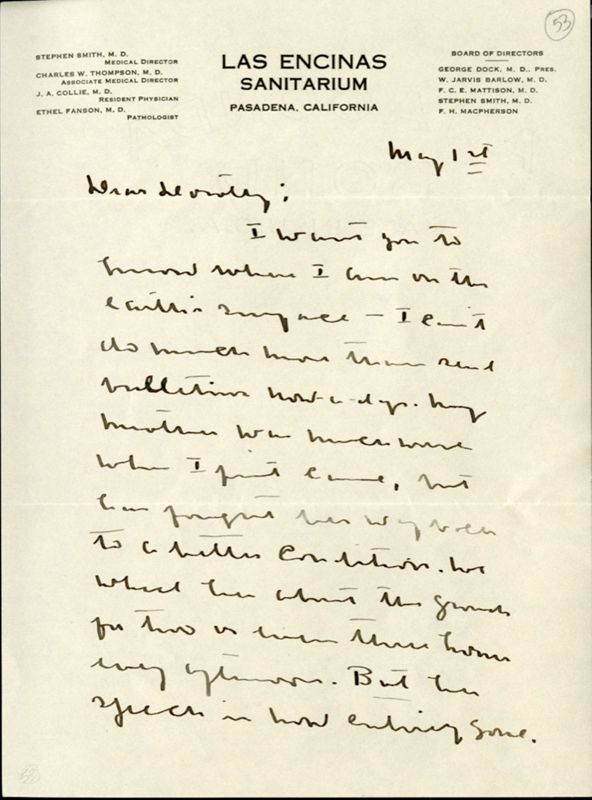 53
STEPHEN SMITH, M. D.
MEDICAL DIRECTOR
CHARLES W. THOMPSON, M. D.
ASSOCIATE MEDICAL DIRECTOR
J. A. COLLIE, M. D.
RESIDENT PHYSICIAN
ETHEL FANSON, M. D.
PATHOLOGIST
LAS ENCINAS
SANITARIUM
PASADENA, CALIFORNIA
BOARD OF DIRECTORS
GEORGE DOCK, M. D., PRES.
W. JARVIS BARLOW, M. D.
F. C. E. MATTISON, M. D.
STEPHEN SMITH, M. D.
F. H. MACPHERSON
May 1st
Dear Dorothy:
I want you to
know where I am on the
earth's surface – I can't
do much more than send
bulletins now-a-days. My
mother was much worse
when I first came, but
has fought her way back
to a better condition. We
wheel her about the grounds
for two or even three hours
every afternoon. But her
speech is now entirely gone.